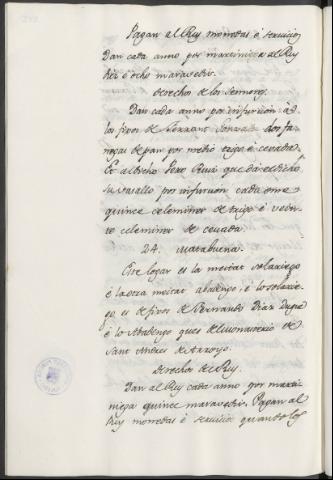 Pagan al Rey monedas è servicios,
Dan cada anno por martiniega al Rey
diez è ocho maravedis.
Derechos de los Sennores.
Dan cada anno por infurcion à
los fijos de Ferrant Gonzalez dos fa-
negas de pan por medio trigo è cevada.
Et al dicho Pero Ruiz que da el dicho
su vasallo por infurcion cada anno
quince celemines de trigo è vein-
te celemines de cevada.
24. Matabuena.
Este logar es la meitat solariego
è la otra meitat abadengo, è lo solarie-
go es de fijos de Fernando Diaz Duque
è lo Abadengo ques del monesterio de
Sant Andres de Arroyo.
Derechos del Rey.
Dan al Rey cada anno por marti-
niega quince maravedis. Pagan al
Rey monedas è servicios quando los